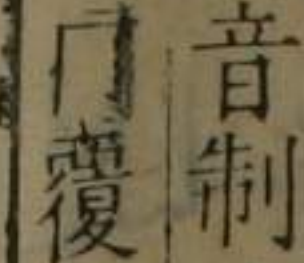 音制
冂覆